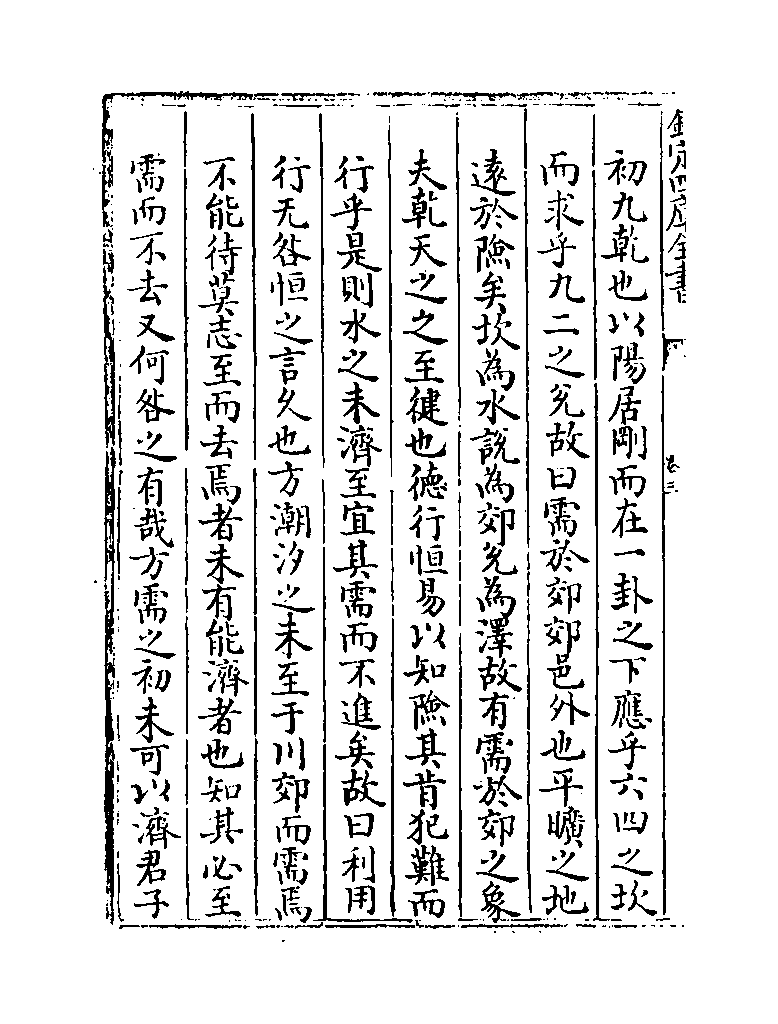 欽定四庫全書
卷三
初九乾也以陽居剛而在一卦之下應乎六四之坎
而求乎九二之兊故曰需於郊郊邑外也平曠之地
遠於險矣坎為水說為郊兊為澤故有需於郊之象
夫乾天之之至健也德行恒易以知險其肯犯難而
行乎是則水之未濟至宜其需而不進矣故曰利用
行无咎恒之言久也方潮汐之未至于川郊而需焉
不能待莫志至而去焉者未有能濟者也知其必至
需而不去又何咎之有哉方需之初未可以濟君子